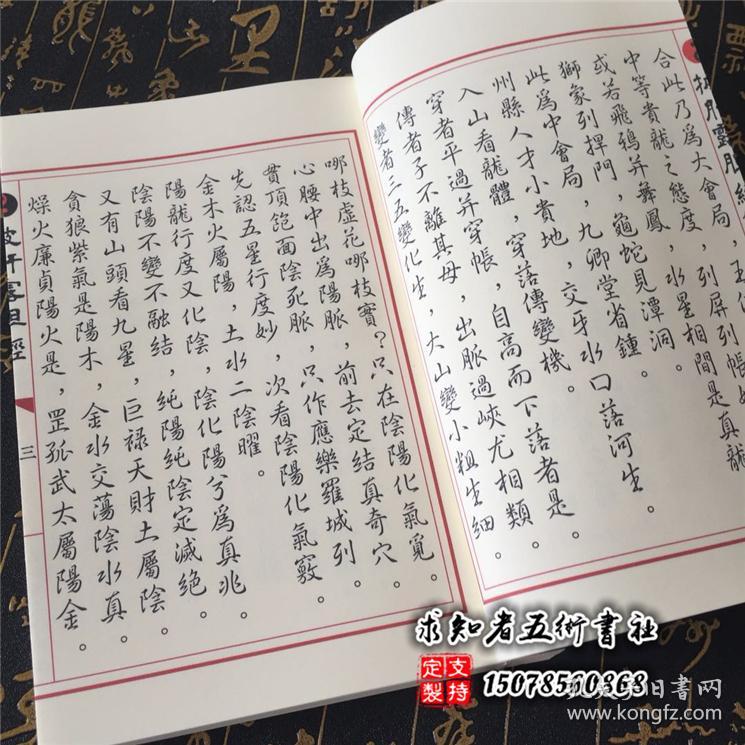 合此乃為大會局，
中等貴龍之態度，列屏列帳
或若飛鴉并舞鳳，水星相間是真龍
獅象列捍門，龜蛇見潭洞。
此為中會局，九卿堂省鍾。
州縣人才小貴地，交牙水口落河生。
入山看龍體，穿落傳變機。
穿者平過并穿帳，自高而下落者是。
傳者子不離其母，出脈過峽尤相類。
變者二五變化生，大山變小粗生細。
哪枝虛花哪枝實？只在陰陽化氣覓。
心腰中出為陽脈，前去定結真奇穴。
貫頂飽面陰死脈，只作應樂羅城列。
先認五星行度妙，次看陰陽化氣竅。
金木火屬陽，土水二陰曜。
陽龍行度又化陰，陰化陽兮為真兆。
陰陽不變不融結，純陽純陰定滅絕。
又有山頭看九星，巨祿天財土屬陰。
貪狼紫氣是陽木，金水交蕩陰水真。
燥火廉貞陽火是，罡孤武太屬陽金。
三
求知者五術書社
支持定製
15078560868
旧書网
www.kongfz.com